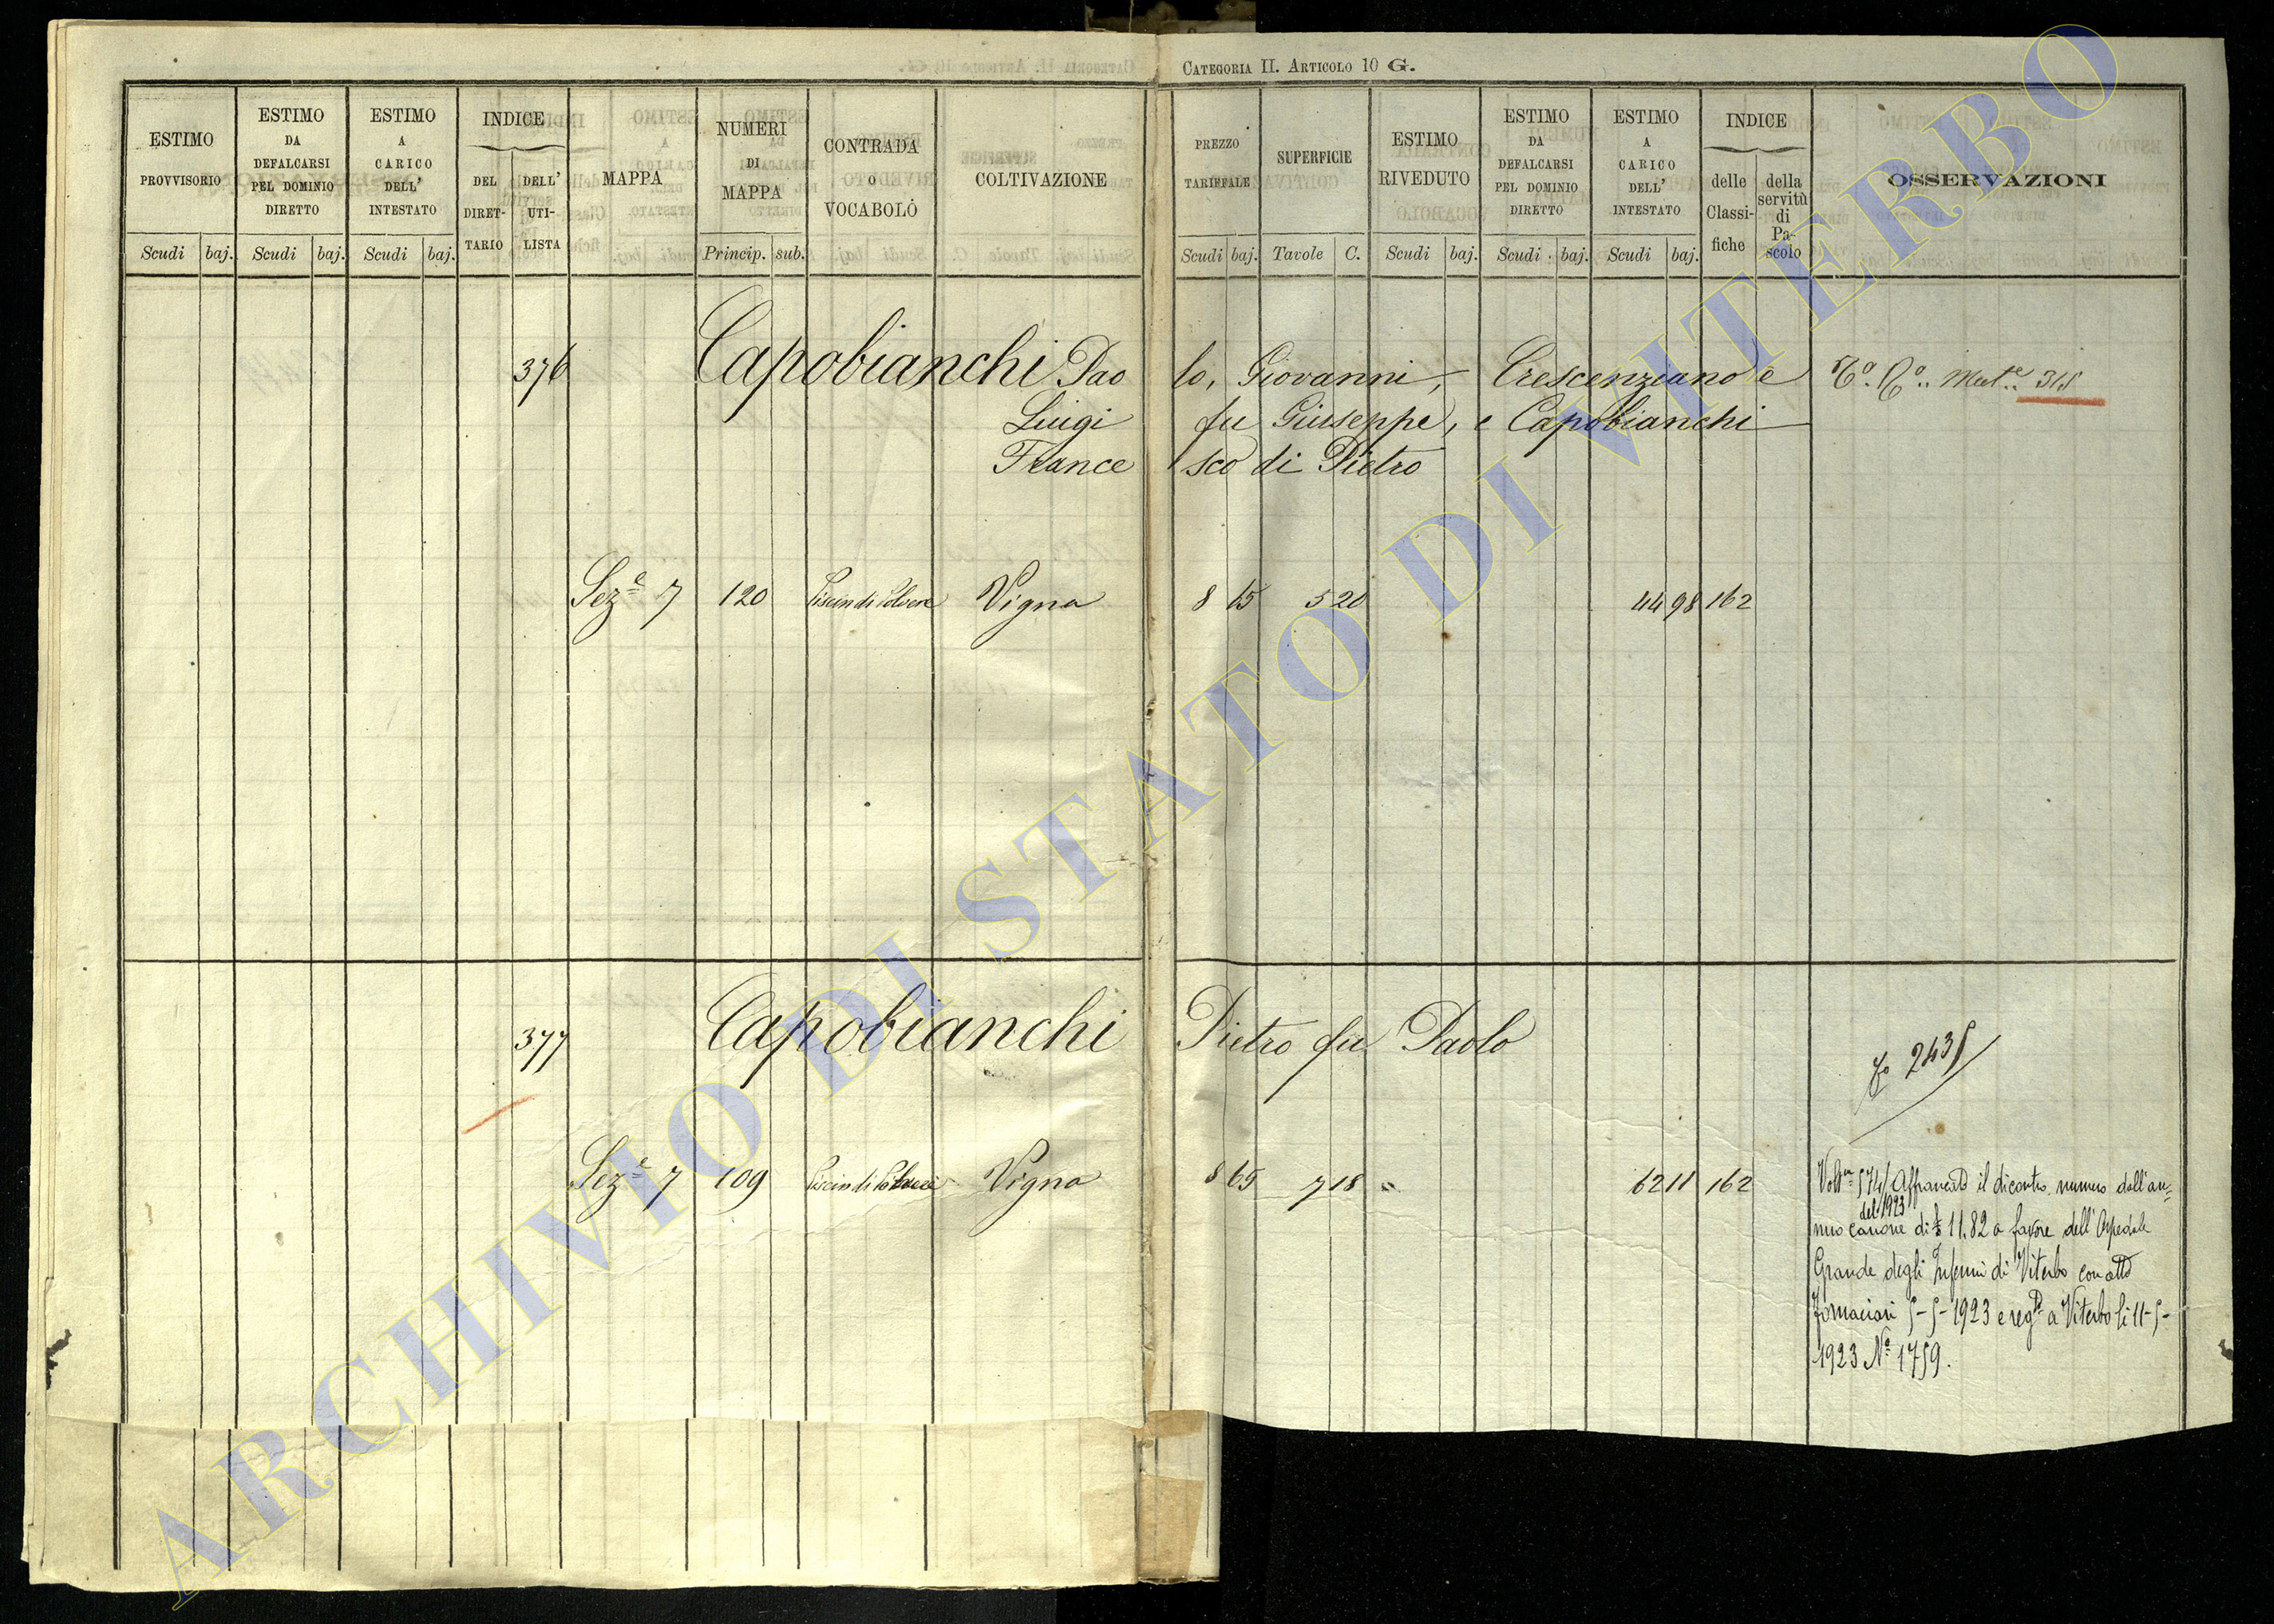 CATEGORIA II. ARTICOLO 10 G.
ESTIMO PROVVISORIO
ESTIMO DA DEFALCARSI PEL DOMINIO DIRETTO
ESTIMO A CARICO DELL' INTESTATO
INDICE
DEL DIRETTARIO
DELL' UTILISTA
MAPPA
NUMERI DI MAPPA
CONTRADA O VOCABOLO
COLTIVAZIONE
PREZZO TARIFFALE
SUPERFICIE
ESTIMO RIVEDUTO
ESTIMO DA DEFALCARSI PEL DOMINIO DIRETTO
ESTIMO A CARICO DELL' INTESTATO
INDICE
delle Classifiche
della servitù di Pascolo
OSSERVAZIONI
Scudi baj. Scudi baj. Scudi baj. Princip. sub. Scudi baj. Tavole C. Scudi baj. Scudi baj. Scudi baj.
376 Capobianchi Pao lo, Giovanni, Crescenziano e 315
Luigi fu Giuseppe, e Capobianchi
France sco di Pietro
Sez.e 7 120 Piscin di Polvere Vigna 8 65 5 20 44 98 162
377 Capobianchi Pietro fu Paolo
2435
Sez.e 7 109 Piscin di Polvere Vigna 8 65 7 18 62 11 162
574 Affrancato il dicontro numero dall'an=
del 1923
nuo canone di £ 11.82 a favore dell'Ospedale
Grande degli Infermi di Viterbo con atto
Fornaciari 5-5-1923 e reg.to a Viterbo li 11-5-
1923 N° 1759.
ARCHIVIO DI STATO DI VITERBO